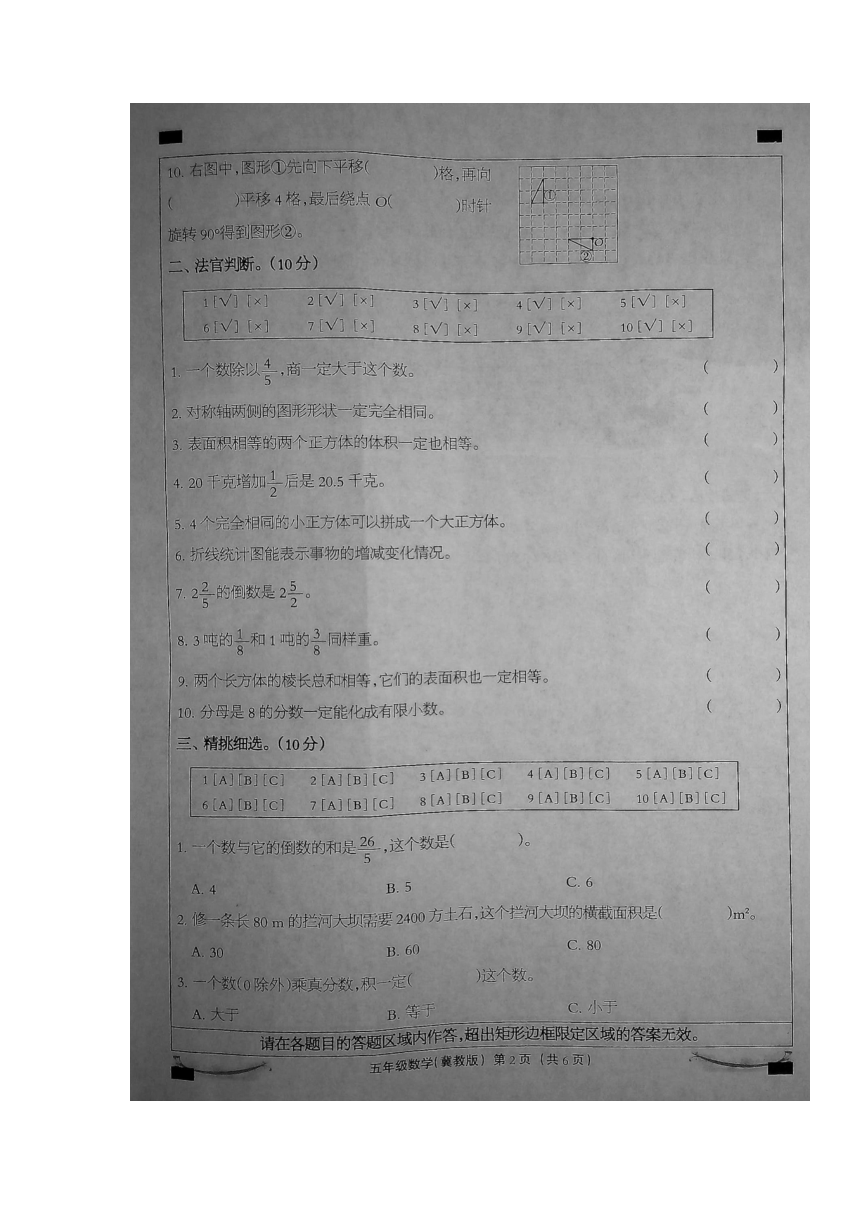 10. 右图中,图形①先向下平移(　　)格,再向
(　　)平移 4 格,最后绕点 O(　　)时针
旋转 90°得到图形②。
①
O
②
二、法官判断。(10 分)
1 [√] [×]　2 [√] [×]　3 [√] [×]　4 [√] [×]　5 [√] [×]
6 [√] [×]　7 [√] [×]　8 [√] [×]　9 [√] [×]　10 [√] [×]
1. 一个数除以 4/5 ,商一定大于这个数。(　　)
2. 对称轴两侧的图形形状一定完全相同。(　　)
3. 表面积相等的两个正方体的体积一定也相等。(　　)
4. 20 千克增加 1/2 后是 20.5 千克。(　　)
5. 4 个完全相同的小正方体可以拼成一个大正方体。(　　)
6. 折线统计图能表示事物的增减变化情况。(　　)
7. 2 2/5 的倒数是 2 5/2 。(　　)
8. 3 吨的 1/8 和 1 吨的 3/8 同样重。(　　)
9. 两个长方体的棱长总和相等,它们的表面积也一定相等。(　　)
10. 分母是 8 的分数一定能化成有限小数。(　　)
三、精挑细选。(10 分)
1 [A] [B] [C]　2 [A] [B] [C]　3 [A] [B] [C]　4 [A] [B] [C]　5 [A] [B] [C]
6 [A] [B] [C]　7 [A] [B] [C]　8 [A] [B] [C]　9 [A] [B] [C]　10 [A] [B] [C]
1. 一个数与它的倒数的和是 26/5 ,这个数是(　　)。
A. 4　B. 5　C. 6
2. 修一条长 80 m 的拦河大坝需要 2400 方土石,这个拦河大坝的横截面积是(　　)m²。
A. 30　B. 60　C. 80
3. 一个数(0 除外)乘真分数,积一定(　　)这个数。
A. 大于　B. 等于　C. 小于
请在各题目的答题区域内作答,超出矩形边框限定区域的答案无效。
五年级数学(冀教版) 第 2 页 (共 6 页)